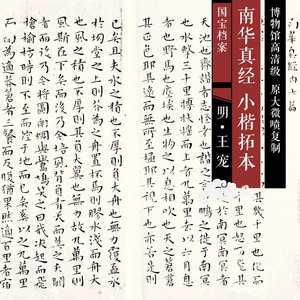 博物馆高清级 原大微喷复制
南华真经 小楷拓本
国宝档案
明·王宠
其幾千里也化而
天池也齊諧者志怪者也諧之言曰鵬之徙於南冥
水擊三千里摶扶搖而上者九萬里去以六月息
者也野馬也塵埃也生物之以息相吹也天之蒼蒼
其正色邪其遠而無所至極邪其視下也亦若是則
已矣且夫水之積也不厚則負大舟也無力覆盃水
於坳堂之上則芥為之舟置杯焉則膠水淺而舟大
也風之積也不厚則其負大翼也無力故九萬里
風斯在下矣而後乃今培風背負青天而莫之夭閼
者而後乃今將圖南蜩與鷽鳩笑之曰我決起而飛
槍榆枋時則不至而控於地而已矣奚以之九萬里
而南為適莽蒼者三飡而反腹猶果然適百里者宿